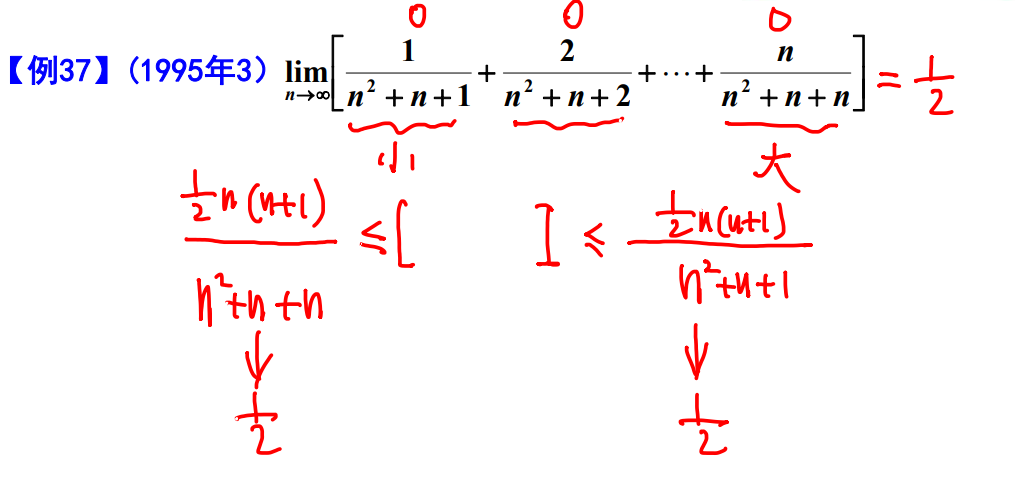 0 0 0
【例37】(1995年3) lim n→∞ [ 1/(n² + n + 1) + 2/(n² + n + 2) + ··· + n/(n² + n + n) ] = 1/2
小 大
½n(n+1)/(n²+n+n) ≤ [ ] ≤ ½n(n+1)/(n²+n+1)
↓ ↓
1/2 1/2